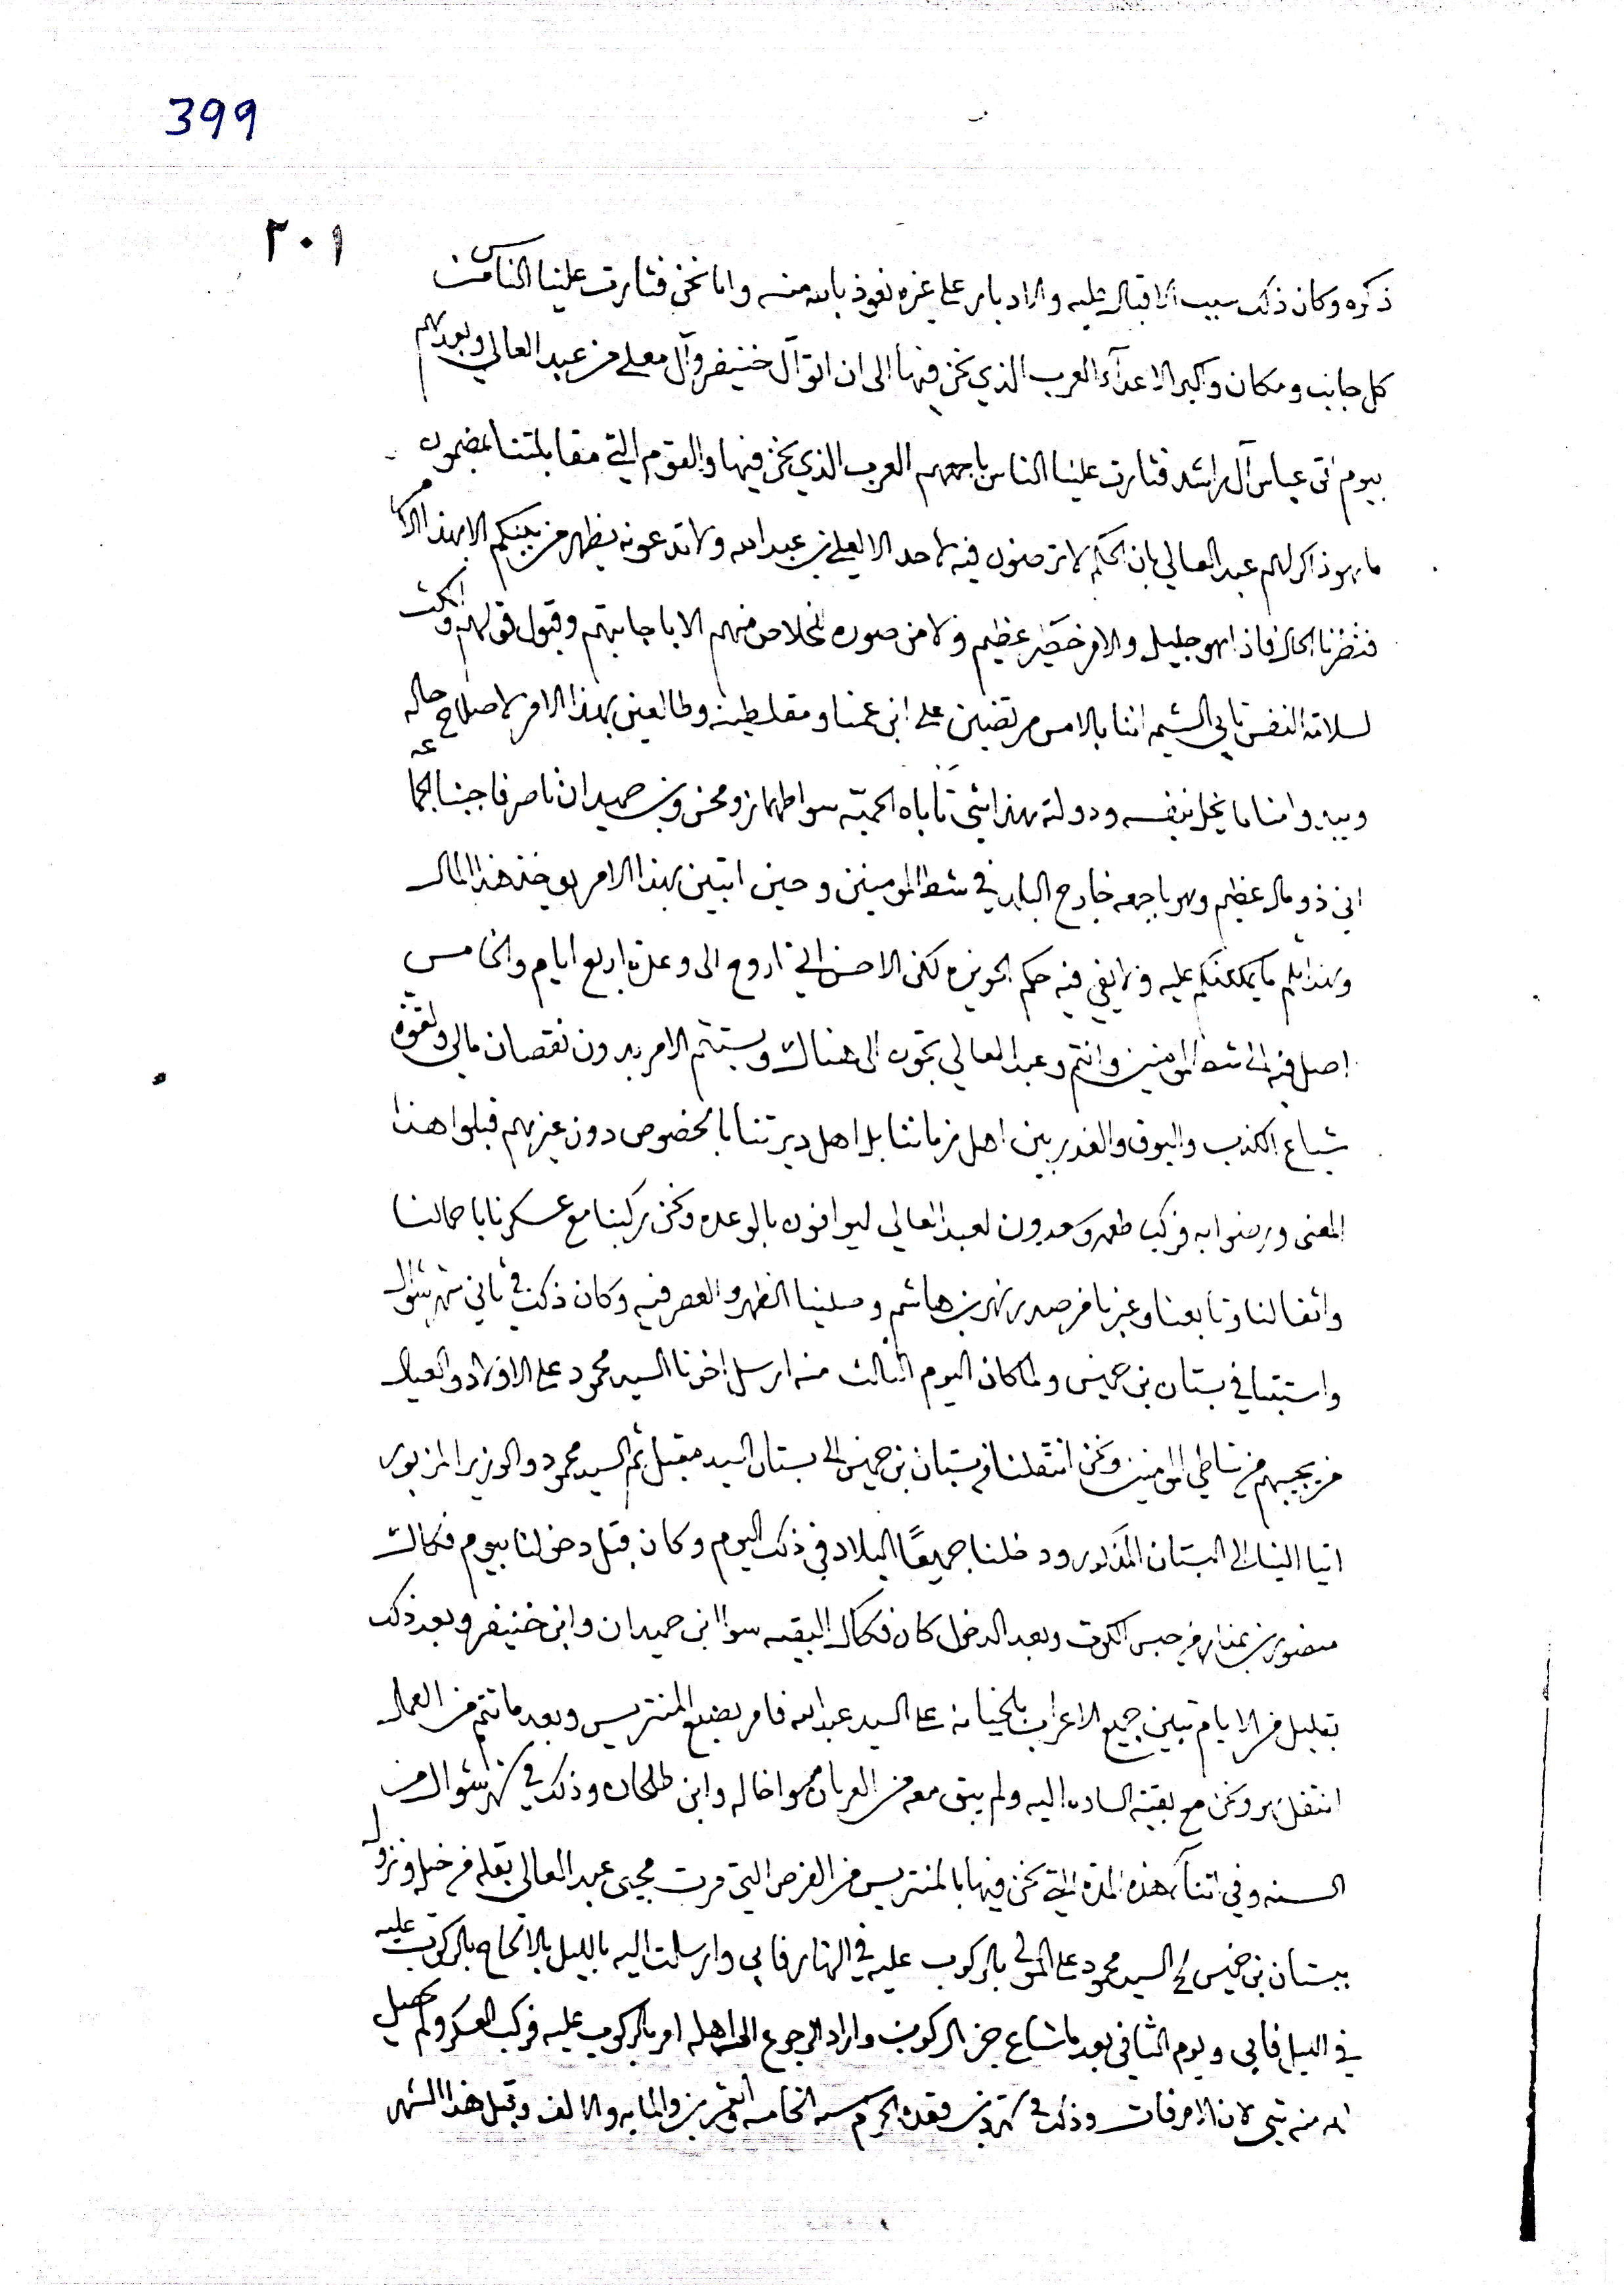 399
٢٠١
ذكره وكان ذلك سبب الاقبال عليه والادبار على غيره نعوذ بالله منه واما نحن فثارت علينا الناس من
كل جانب ومكان واكبر الاعدآء العرب الذي نحن فيها الى ان اتو آل خنيفر وآل معلى من عبد العالي وبعدهم
بيوم اتى عباس آل راشد فثارت علينا الناس باجمعهم العرب الذي نحن فيها والقوم التي مقابلتنا بمضمون
ما هو ذاكر لهم عبد العالي بان الحكم لا ترضون فيه لاحد الا لعلي بن عبد الله ولا تدعونه يظهر من بينكم الا بهذا الامر
فنظرنا الحال فاذا هو جليل والامر خطير عظيم ولا من صوره للخلاص منهم الا باجابتهم وقبول قولهم
لسلامة النفس تابى الشيم اننا بالامس مرتضين على ابن عمنا و وطالعين بهذا الامر لاصلاح حاله
ويبدوا منا ما يخل بنفسه ودولته هذا شيء تأباه الحميّه سوا طهماز ومحسن وبن حميدان ناصر فاجبنا الجماعه
اني ذو مال عظيم وهو باجمعه خارج البلد في شط المومينين وحين اتبين بهذا الامر يوخذ هذا المال
وهذا لم ما يمكنكم عليه ولا يفي فيه حكم الحويزه لكن الاحسن اني اروح الى وعدة اربع ايام والخامس
اصل فيه الى شط المومنين وانتم وعبد العالي تجون الى هناك ويستتم الامر بدون نقصان مالي ولقوة
شياع الكذب والبوق والغدر بين اهل زماننا بل اهل ديرتنا بالخصوص دون غيرهم قبلوا هذا
المعنى ورضوا به فركب طعمه وسعدون لعبد العالي ليوافون بالوعده ونحن ركبنا مع عسكرنا باحمالنا
واثقالنا وتابعنا وعبرنا من صدر نهر بن هاشم وصلينا الظهر والعصر فيه وكان ذلك في ثاني شهر شوال
واستبتنا في بستان بن خميس ولما كان اليوم الثالث منه ارسل اخونا السيد محمود على الاولاد والعيال
من يجيبهم من شاطي المومنين ونحن انتقلنا من بستان بن خميس الى بستان السيد مقبل ثم السيد محمود والوزير المزبور
اتيا الينا الى البستان المذكور ودخلنا جميعًا البلاد في ذلك اليوم وكان قبل دخولنا بيوم فكاك
منصور بن من حبس الكوت وبعد الدخول كان فكاك البقيه سوا ابن حميدان وابن خنيفر وبعد ذلك
بقليل من الايام تبين جميع الاعراب بالخيانه على السيد عبد الله فامر بضبع المنتريس وبعد ما تتم من العمال
انتقل هو ونحن مع بقية الساده اليه ولم يبق معه من العربان سوا خاله وابن طلحان وذلك في شهر شوال من
السنه وفي اثنآء هذه المدة التي نحن فيها بالمنتريس من الفرص التي مرت مجيى عبد العالي بقله من خيل ونزول
ببستان بن خميس السيد محمود على المولى بالركوب عليه في النهار فابى وارسلت اليه بالليل بالالحاح بالركوب عليه
في الليل فابى ويوم الثاني بعد ما شاع خبر الركوب واراد الرجوع الى اهله امر بالركوب عليه فركب العسكر ولم يحصل
له منه شي لان الامر فات وذلك في شهر ذي قعدة الحرام سنه الخامسه والعشرين والمايه والالف وقبل هذا الشهر